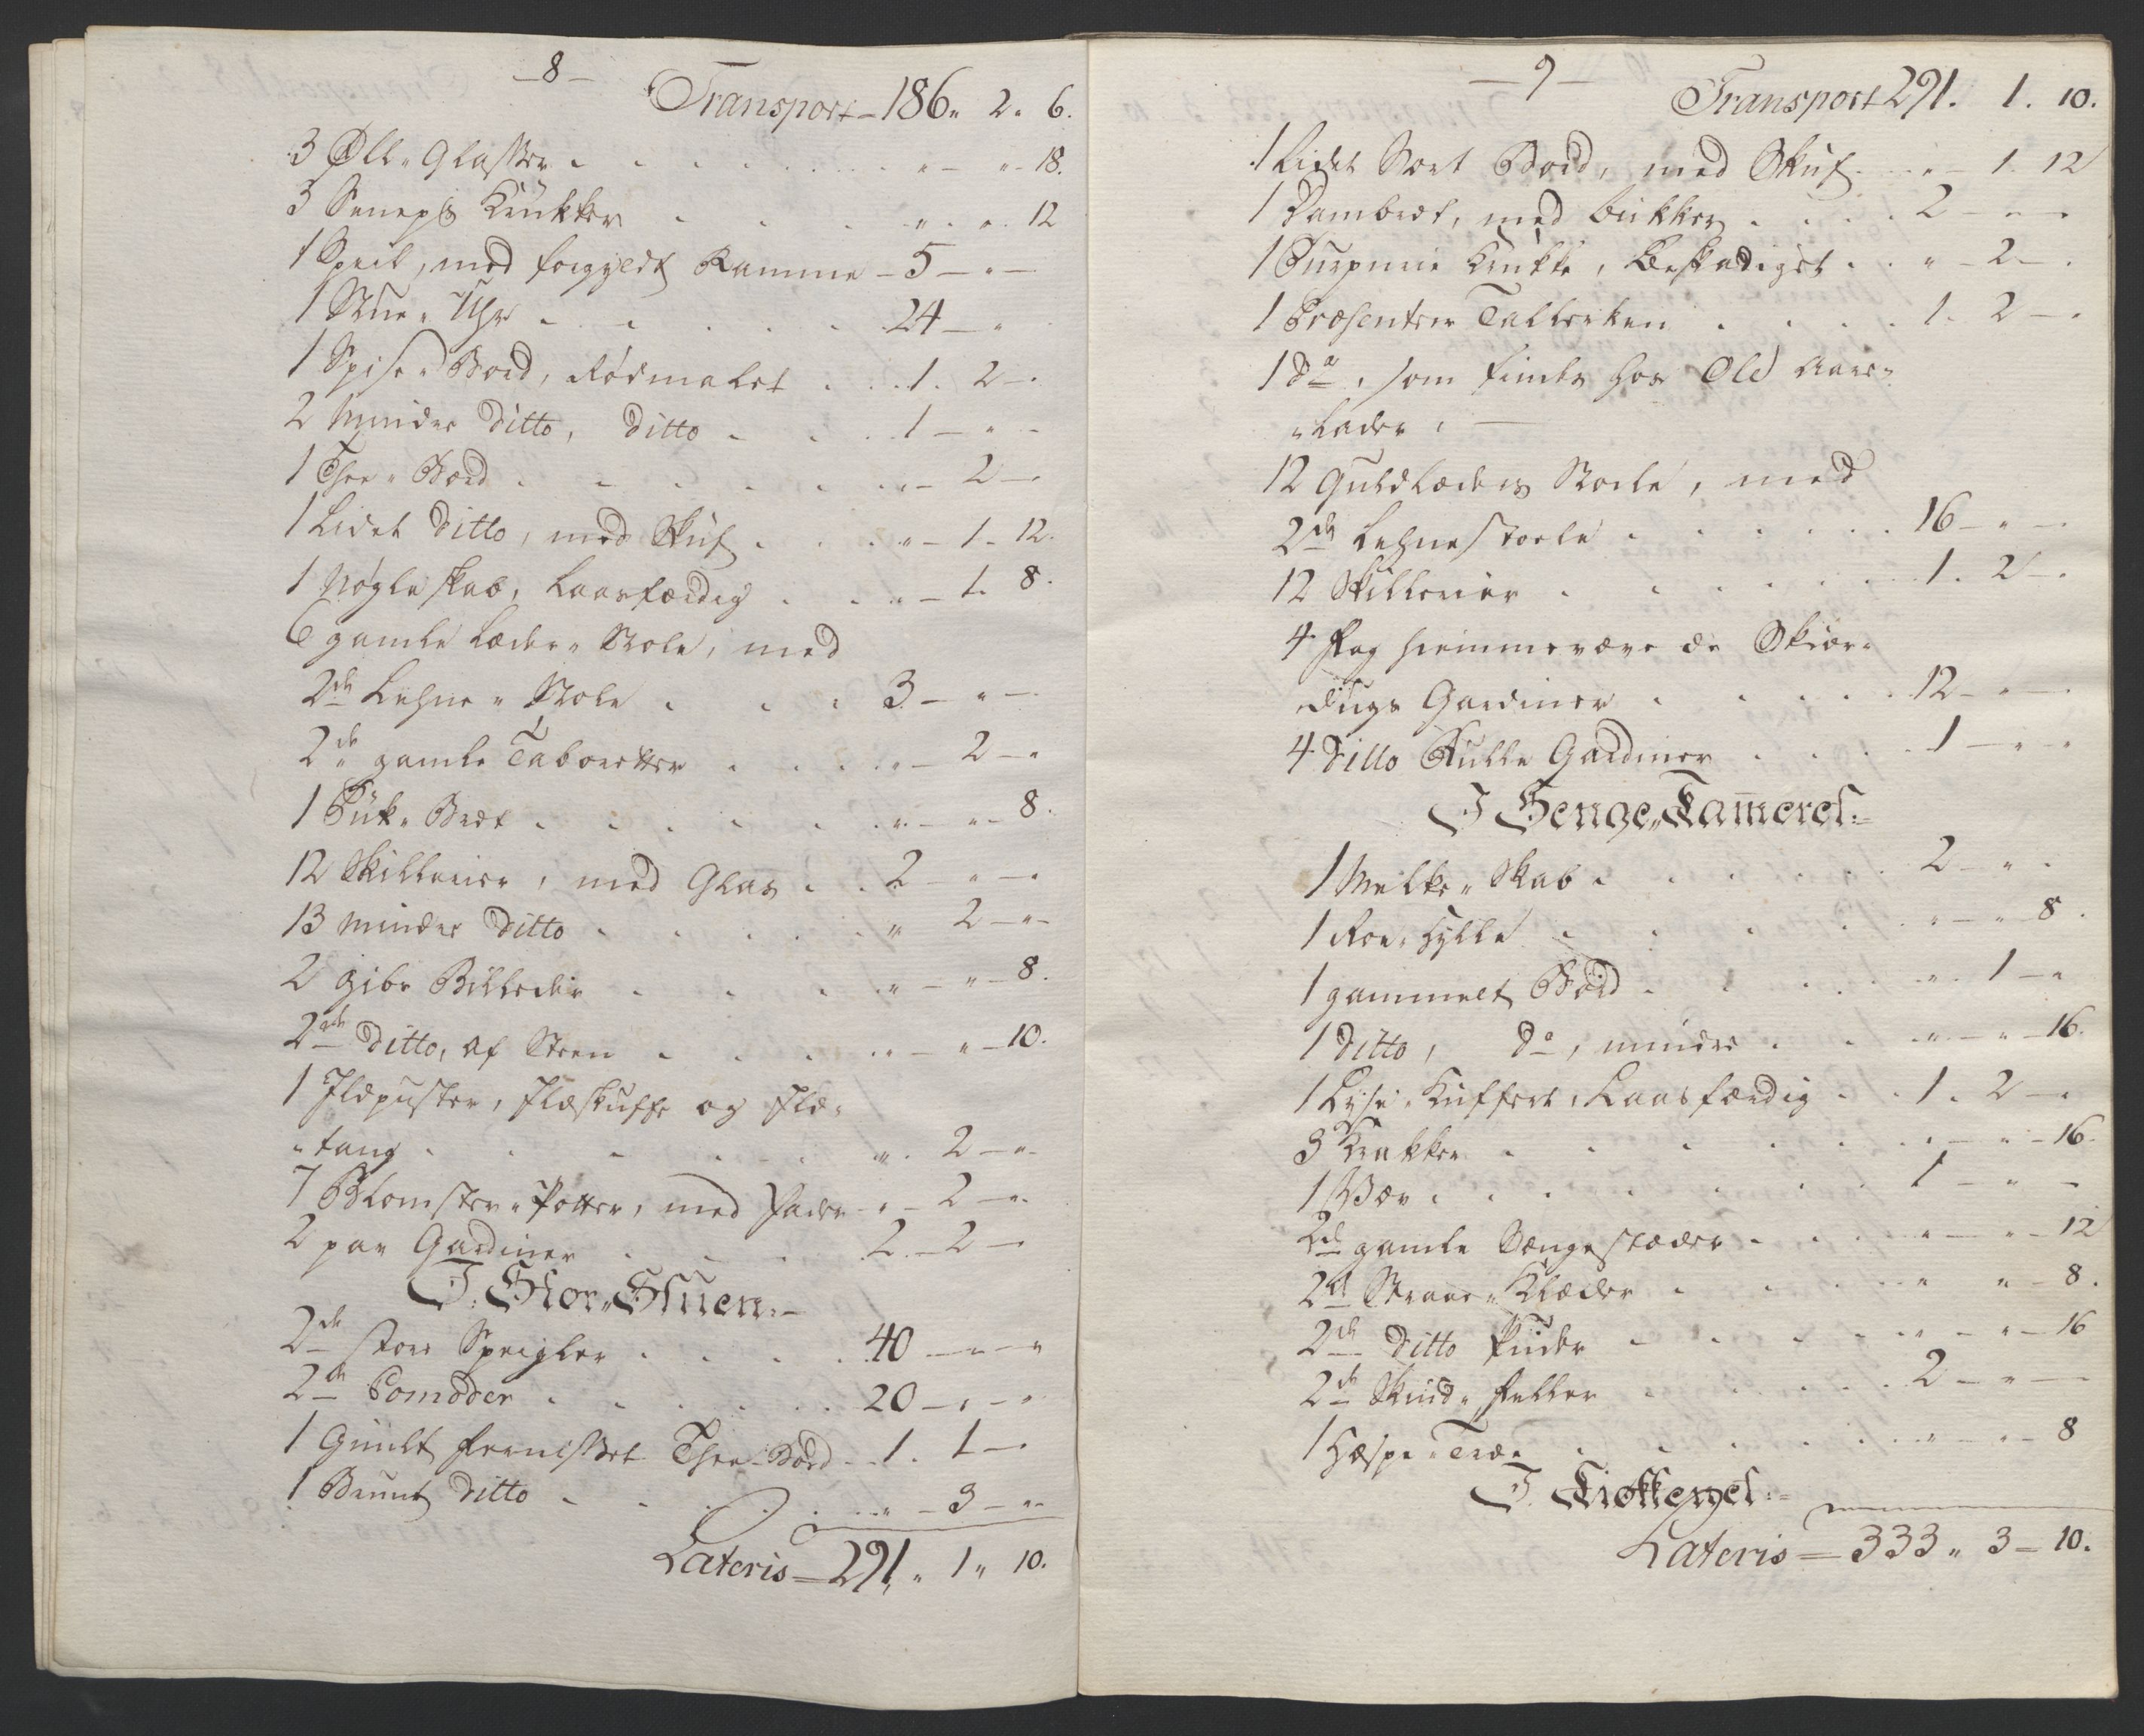 -8-
Transport - 186 " 2 " 6.
3 Øll " Glasser . . . " - " - 18.
3 Seneps Krukker . . . " . " . 12
1 Speil, med forgyldt Ramme - 5 - " -
1 Stue " Uhr . . . 24 - "
1 Spise " Bord, Rødmalet . . . 1 . 2 - .
2 Minder Ditto, Ditto . . . 1 - " -
1 Thee " Bord . . . " - 2 - .
1 Lidet Ditto, med Skuf . . . " - 1 - 12.
1 Nøgle skab, Laasfærdig . . . " - 1. 8.
6 gamle Læder " Stole, med
2de Lehne " Stole . . . 3 - " -
2de gamle Taboretter . . . " - 2 - "
1 Bræt . . . " - " - 8.
12 Skillerier, med Glas . . 2 - " -
13 minder Ditto . . . " 2 - " -
2 gibs Billeder . . . " - " - 8.
2de Ditto, af Steen . . . " - " - 10.
1 Ildpuster, Ildskuffe og Ild-
" tang . . . " . 2 - "
7 Blomster " Potter, med Fader - " - 2 - "
2 par Gardiner . . . 2 . - 2 - .
I. Stor " Stuen :-
2de store Speigler . . . 40 - " - "
2de Comoder . . . 20 - " - "
1 Guult fernisset Thee-Bord - 1 . 1 - .
1 Bruunt Ditto . . . " - 3 - " -
Lateris = 291 " 1 " 10.
-9-
Transport 291. 1. 10.
1 Lidet Sort Bord, med Skuf . . . " - 1 . 12
1 Dambræt, med Brikker . . . 2 - " -
1 Krukke, Beskadiget . . " - 2 - .
1 Præsenteer Tallerken . . . 1 . 2 - .
1 Do, som findes hos Ole Aars-
" , —
12 Guldlæders Stoele, med
2de Lehnestoele . . . 16 - " -
12 Skillerier . . . 1 . 2 - .
4 Fag hiemmevævede Skiør-
dugs Gardiner . . . 12 - " - .
4 Ditto Rulle Gardiner . . . 1 - " - "
I Senge " Kam̄eret :-
1 Melke " Skab . . . 2 - " .
1 Roe " Hylle . . . " - " 8.
1 gammelt Bord . . . " . 1 - "
1 Ditto, Do, minder . . . " - " - 16.
1 Lyse " Kuffert, Laasfærdig . . 1 . 2 - "
3 Krakker . . . " - " - 16.
1 Væv . . . 1 - " -
2de gamle Sængestæder . . . " - " - 12
2de Straae " Klæder . . . " " - 8.
2de Ditto Puder . . . " - " - 16
2de Skind " Feller . . . 2 - " -
1 Hespe " Træe . . . " - " - 8
I. Kiøkkenet :-
Lateris = 333 " 3 - 10.